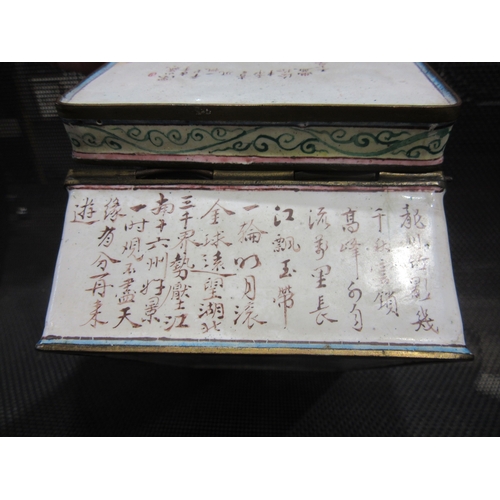 龍幾
千秋雲鎖
高峰水自
流萬里長
江飄玉帶
一輪明月滾
金球遠望湖北
三千界勢壓江
南十六州好景
一时观不盡天
緣有分再来
遊